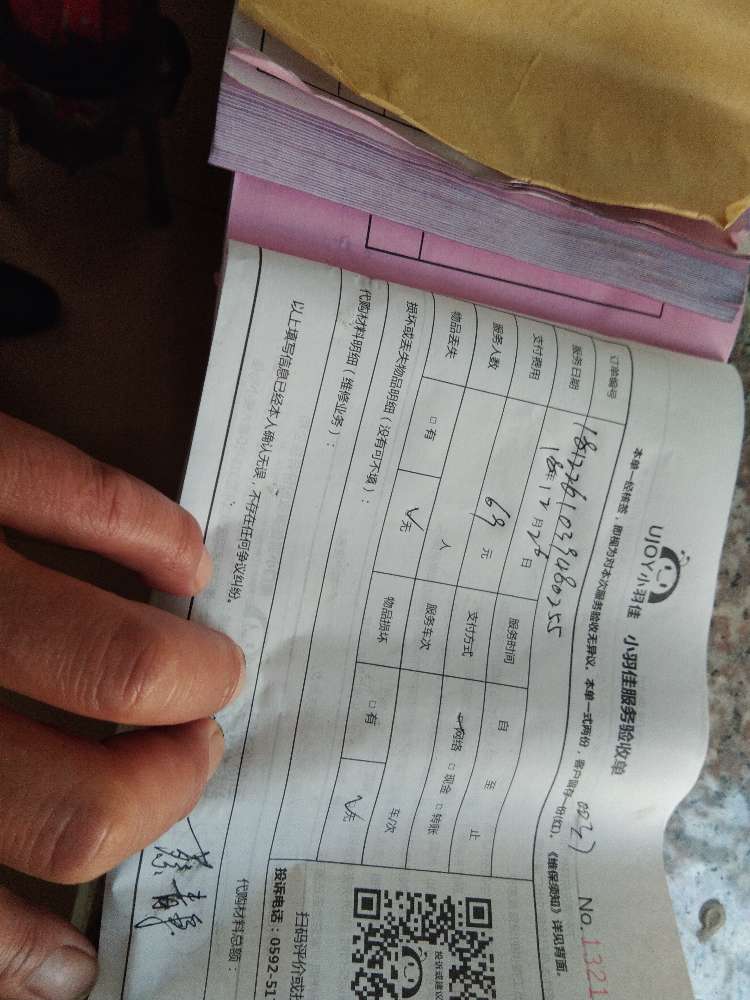 UJOY小羽佳 小羽佳服务验收单
No.1321
本单一经核签，即视为对本次服务验收无异议。本单一式两份，客户留存一份(红)。《维保须知》详见背面。
订单编号 1812261039480255
服务日期 18年12月26日 服务时间 自 至 止
支付费用 69 元 支付方式 网络 □ 现金 □ 转账
服务人数 人 服务车次 车/次
物品丢失 □ 有 ☑ 无 物品损坏 □ 有 ☑ 无
损坏或丢失物品明细（没有可不填）：
代购材料明细（维修业务）：
代购材料总额：
以上填写信息已经本人确认无误，不存在任何争议纠纷。
投诉或建议
扫码评价或
投诉电话：0592.51